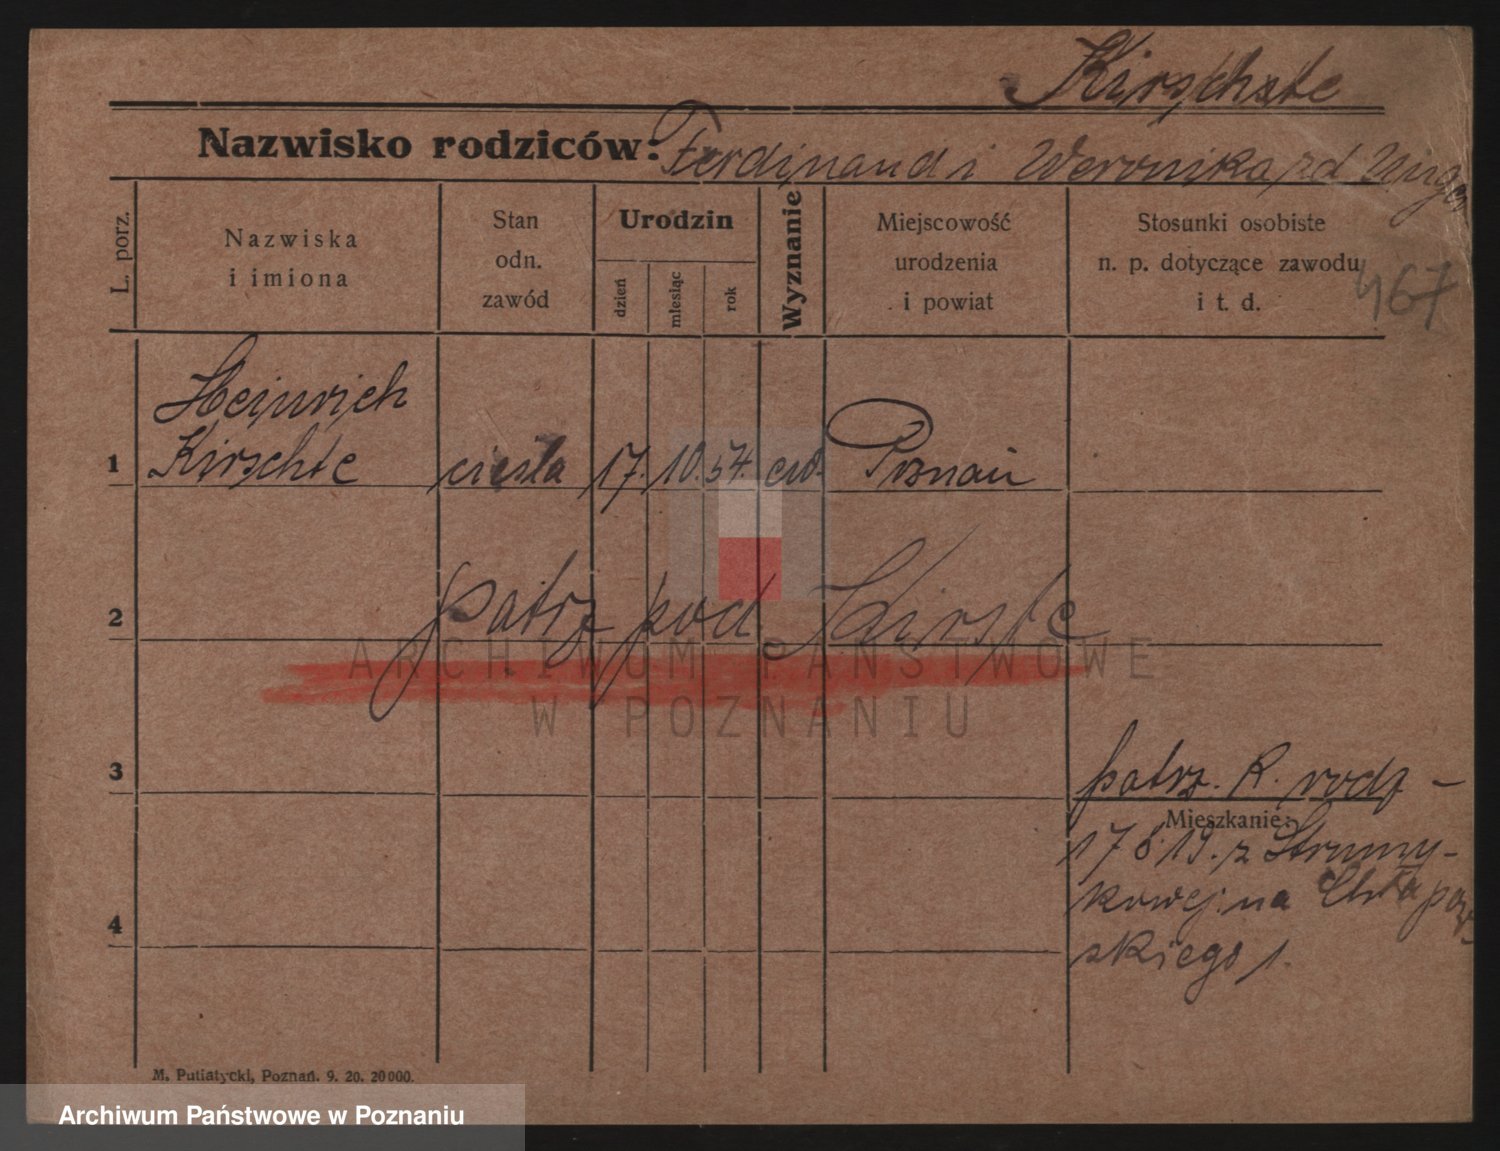 Kirschste
Nazwisko rodziców: Ferdinand i Weronika zd Unger
L. porz.
Nazwiska
i imiona
Stan
odn.
zawód
Urodzin
dzień
miesiąc
rok
Wyznanie
Miejscowość
urodzenia
i powiat
Stosunki osobiste
n. p. dotyczące zawodu
i t. d.
467
Heinrich
1 Kirschte cieśla 17. 10. 57. ew. Poznań
2 patrz pod Kirste
3 patrz. R. rodz -
Mieszkanie:
17 8 19. z Strumy-
kowej na Chłapow-
4 skiego 1.
M. Putiatycki, Poznań. 9. 20. 20000.
ARCHIWUM PAŃSTWOWE
W POZNANIU
Archiwum Państwowe w Poznaniu